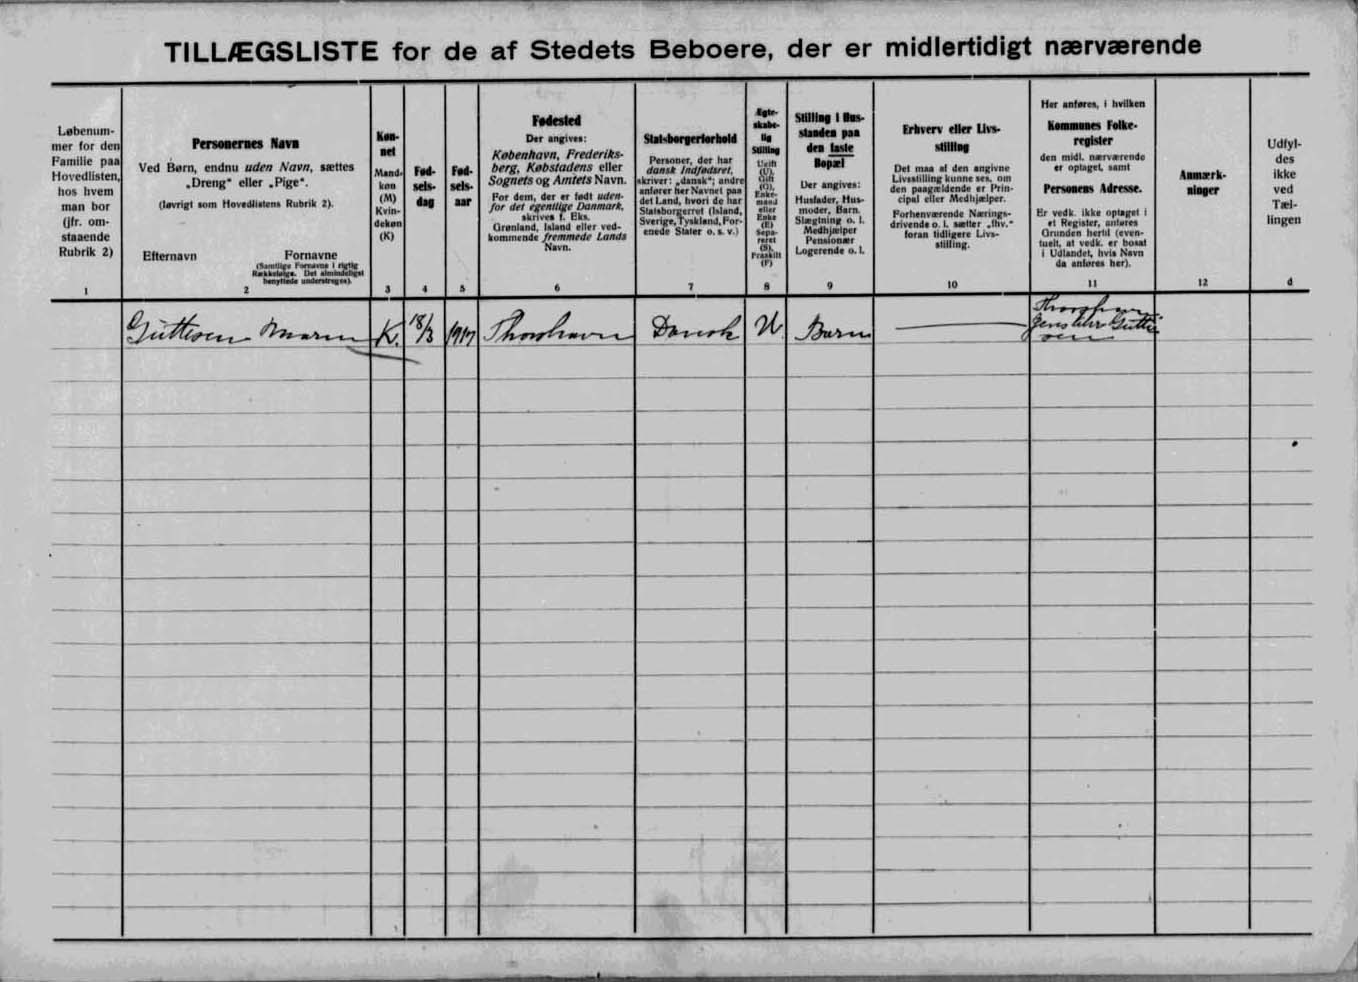 TILLÆGSLISTE for de af Stedets Beboere, der er midlertidigt nærværende
Løbenum-
mer for den
Familie paa
Hovedlisten,
hos hvem
man bor
(jfr. om-
staaende
Rubrik 2)
1
Personernes Navn
Ved Børn, endnu uden Navn, sættes
„Dreng“ eller „Pige“.
(Iøvrigt som Hovedlistens Rubrik 2).
Efternavn
Fornavne
(Samtlige Fornavne i rigtig
Rækkefølge. Det almindeligst
benyttede understreges).
2
Køn-
net
Mand-
køn
(M)
Kvin-
dekøn
(K)
3
Fød-
sels-
dag
4
Fød-
sels-
aar
5
Fødested
Der angives:
København, Frederiks-
berg, Købstadens eller
Sognets og Amtets Navn.
For dem, der er født uden-
for det egentlige Danmark,
skrives f. Eks.
Grønland, Island eller ved-
kommende fremmede Lands
Navn.
6
Statsborgerforhold
Personer, der har
dansk Indfødsret,
skriver: „dansk“; andre
anfører her Navnet paa
det Land, hvori de har
Statsborgerret (Island,
Sverige, Tyskland, For-
enede Stater o. s. v.)
7
Ægte-
skabe-
lig
Stilling
Ugift
(U),
Gift
(G),
Enke-
mand
eller
Enke
(E)
Sepa-
reret
(S),
Fraskilt
(F)
8
Stilling i Hus-
standen paa
den faste
Bopæl
Der angives:
Husfader, Hus-
moder, Barn.
Slægtning o. l.
Medhjælper
Pensionær
Logerende o. l.
9
Erhverv eller Livs-
stilling
Det maa af den angivne
Livsstilling kunne ses, om
den paagældende er Prin-
cipal eller Medhjælper.
Forhenværende Nærings-
drivende o. l. sætter „fhv.“
foran tidligere Livs-
stilling.
10
Her anføres, i hvilken
Kommunes Folke-
register
den midl. nærværende
er optaget, samt
Personens Adresse.
Er vedk. ikke optaget i
et Register, anføres
Grunden hertil (even-
tuelt, at vedk. er bosat
i Udlandet, hvis Navn
da anføres her).
11
Anmærk-
ninger
12
Udfyl-
des
ikke
ved
Tæl-
lingen
d
Guttesen Maren K. 18/3 1917 Thorshavn Dansk U. Barn
Thorshavn